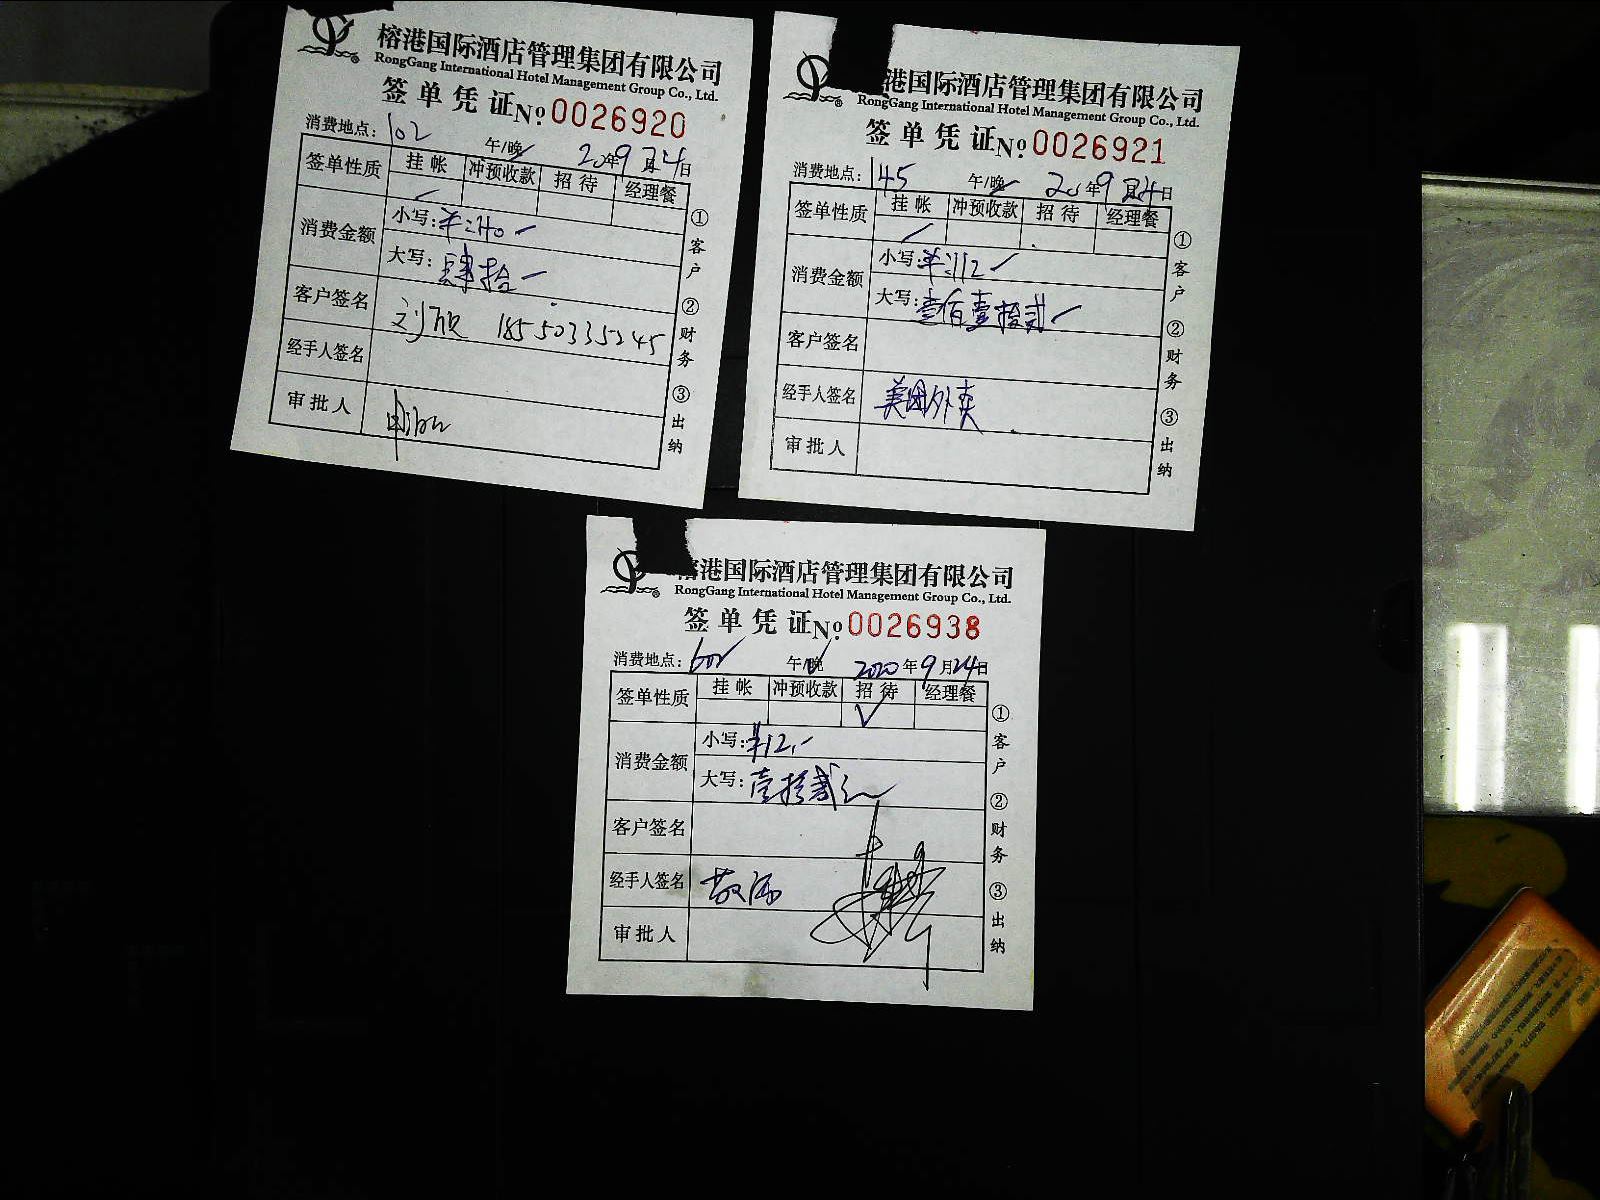 榕港国际酒店管理集团有限公司
RongGang International Hotel Management Group Co., Ltd.
签单凭证 No 0026920
消费地点：102 午/晚 20年9月24日
签单性质 挂帐 冲预收款 招待 经理餐
消费金额 小写：
大写：肆拾
客户签名 18550335245
经手人签名
审批人
①客户 ②财务 ③出纳
港国际酒店管理集团有限公司
RongGang International Hotel Management Group Co., Ltd.
签单凭证 No 0026921
消费地点：145 午/晚 20年9月24日
签单性质 挂帐 冲预收款 招待 经理餐
消费金额 小写：¥:112
大写：壹佰壹拾贰
客户签名
经手人签名 美团外卖
审批人
①客户 ②财务 ③出纳
港国际酒店管理集团有限公司
RongGang International Hotel Management Group Co., Ltd.
签单凭证 No 0026938
消费地点： 午/晚 2020年9月24日
签单性质 挂帐 冲预收款 招待 经理餐
消费金额 小写：¥12.
大写：壹拾贰元
客户签名
经手人签名
审批人
①客户 ②财务 ③出纳